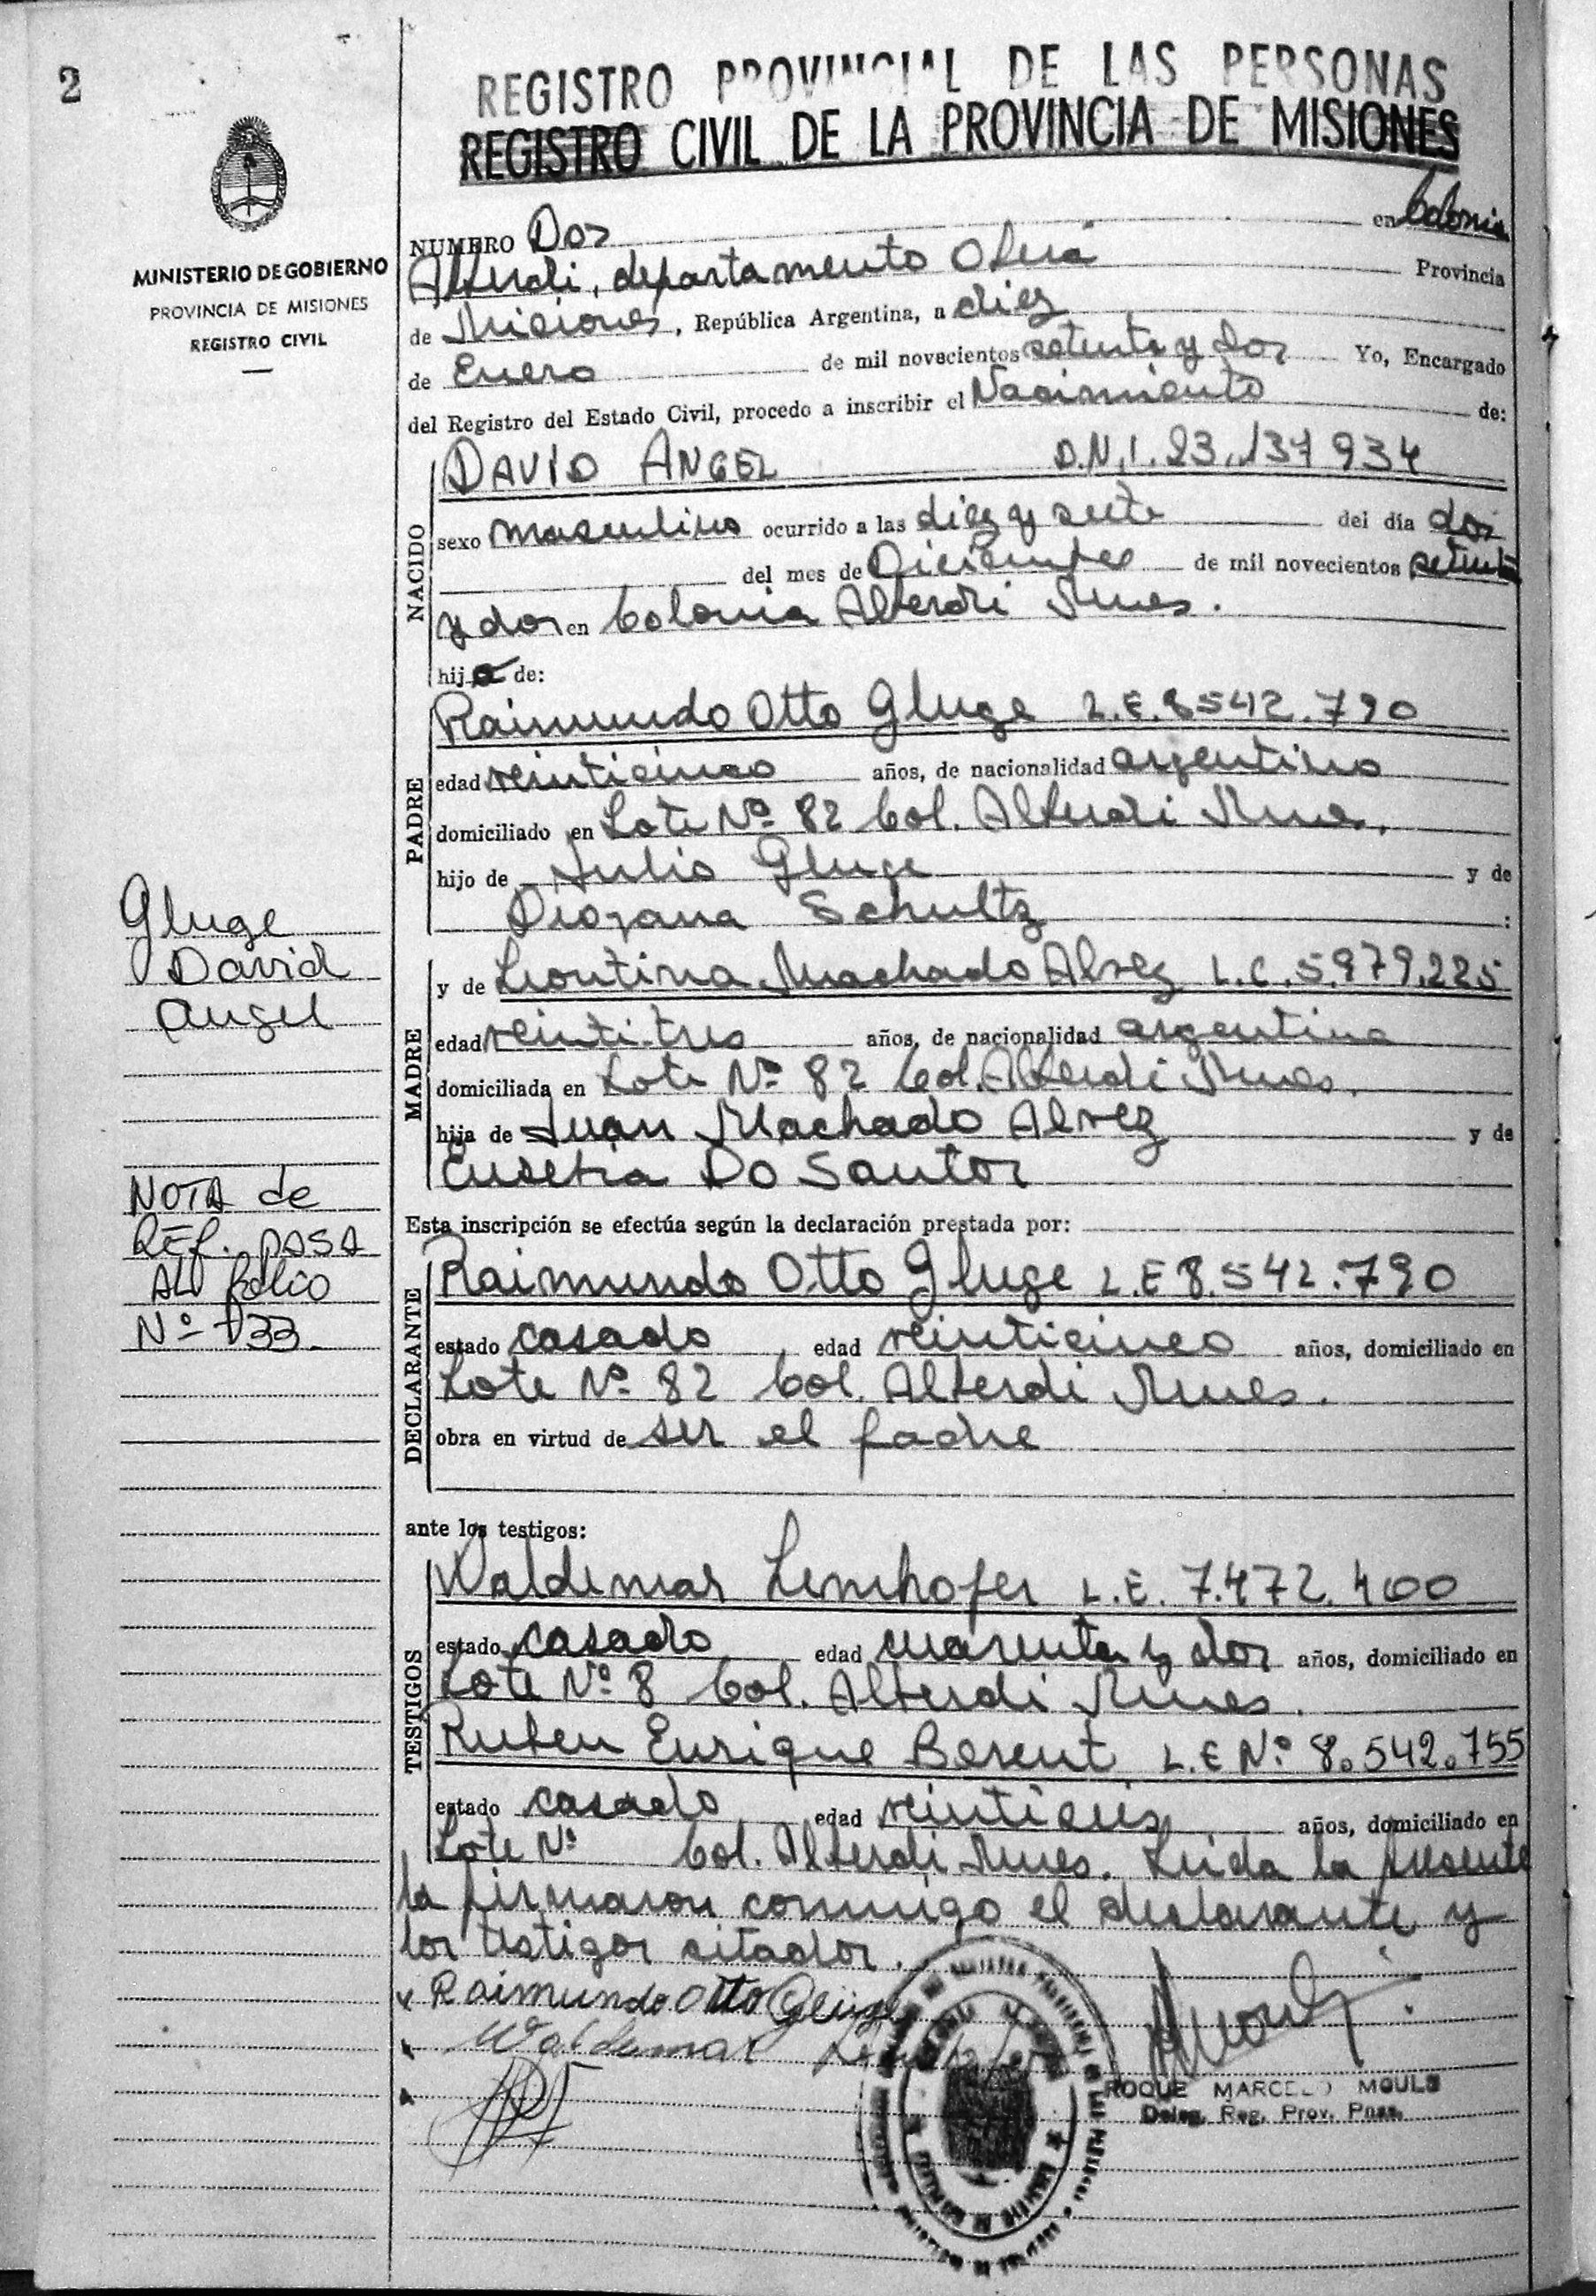 2
REGISTRO PROVINCIAL DE LAS PERSONAS
REGISTRO CIVIL DE LA PROVINCIA DE MISIONES
MINISTERIO DE GOBIERNO
PROVINCIA DE MISIONES
REGISTRO CIVIL
NUMERO Dos en Colonia
Alberdi, departamento Oberá Provincia
de Misiones, República Argentina, a diez
de Enero de mil novecientos setenta y dos Yo, Encargado
del Registro del Estado Civil, procedo a inscribir el Nacimiento de:
NACIDO
DAVID ANGEL D.N.I. 23.137934
sexo masculino ocurrido a las diez y siete del día dos
del mes de Diciembre de mil novecientos setenta
y dos en Colonia Alberdi Mnes.
hijo de:
PADRE
Raimundo Otto Gluge L.E. 8542.790
edad veinticinco años, de nacionalidad argentino
domiciliado en Lote Nº 82 Col. Alberdi Mnes.
hijo de Julio Gluge y de
Schultz :
Gluge
David
Angel
MADRE
y de Leontina Machado Alvez L.C. 5.979.225
edad veinti-tres años, de nacionalidad argentina
domiciliada en Lote Nº 82 Col. Alberdi Mnes.
hija de Juan Machado Alvez y de
Eusebia Do Santos
NOTA de
REF. PASA
AL folio
Nº 133.
Esta inscripción se efectúa según la declaración prestada por:
DECLARANTE
Raimundo Otto Gluge L.E 8.542.790
estado casado edad veinticinco años, domiciliado en
Lote Nº 82 Col. Alberdi Mnes.
obra en virtud de ser el padre
ante los testigos:
TESTIGOS
Waldemar Lenhofer L.E. 7.472.400
estado casado edad cuarenta y dos años, domiciliado en
Lote Nº 8 Col. Alberdi Mnes.
Ruben Enrique Berent L.E Nº 8.542.755
estado casado edad años, domiciliado en
Lote Nº Col. Alberdi Mnes. Leida la presente
la firmaron conmigo el declarante y
los testigos citados.
x Raimundo Otto Gluge
x Waldemar
x
ROQUE MARCELO
Deleg. Reg. Prov. Pnas.